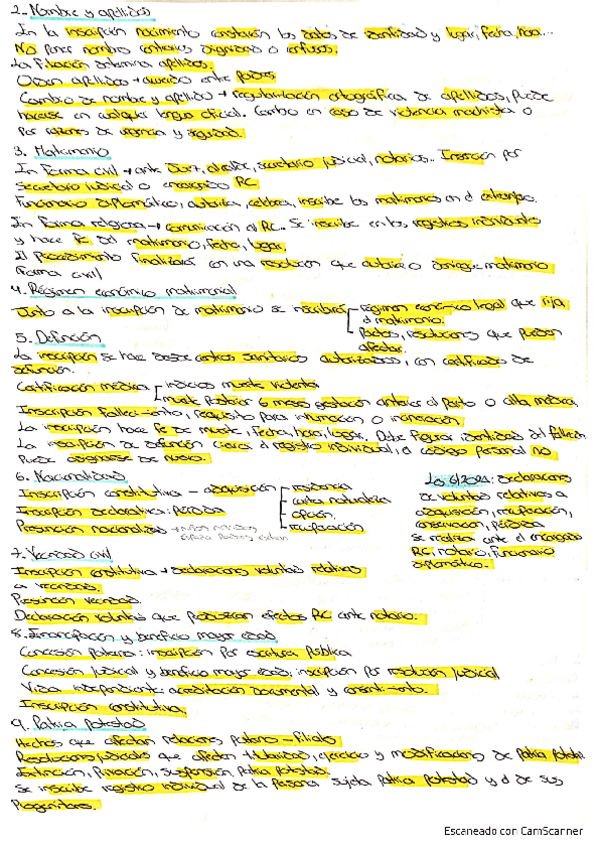 2. Nombre y apellidos
En la inscripción nacimiento constarán los datos de identidad y lugar, fecha, hora...
No poner nombre contrarios dignidad o confusos.
La Filiación determina apellidos.
Orden apellidos → acuerdo entre padres
Cambio de nombre y apellido → regularización ortográfica de apellidos, puede
hacerse en cualquier lengua oficial. Cambio en caso de violencia machista o
por razones de urgencia y seguridad.
3. Matrimonio
En forma civil → ante Juez, alcalde, secretario judicial, notarios.. Inscripción por
Secretario judicial o encargado RC
Funcionario diplomático; autoriza, celebra, inscribe los matrimonios en el extranjero.
En forma religiosa → comunicación al RC.. Se inscribe en los registros individuales
y hace fe del matrimonio, fecha, lugar,
El procedimiento finalizará con una resolución que autorice o deniegue matrimonio
forma civil
4. Régimen económico matrimonial
Junto a la inscripción de matrimonio se inscribirá régimen económico legal que rija
el matrimonio.
Pactos, resoluciones que puedan
afectar.
5. Defunción
La inscripción se hace desde centros sanitarios autorizados, con certificado de
defunción.
Certificación médica indicios muerte violenta
muerte posterior 6 meses gestación anterior al parto o alta médica
Inscripción fallecimiento, requisito para inhumación o incineración.
La inscripción hace fe de muerte, fecha, hora, lugar. Debe figurar identidad del fallecido
La inscripción de defunción cierra el registro individual, el código personal no
puede asignarse de nuevo.
6. Nacionalidad
Inscripción constitutiva – adquisición residencia
carta naturaleza
opción.
recuperación
Inscripción declarativa: pérdida
Presunción nacionalidad → nacidos España padres
La 6/2021: declaraciones
de voluntad relativas a
adquisición, recuperación,
conservación, pérdida
se realiza ante el encargado
RC, notario, funcionario
diplomático.
7. Vecindad civil
Inscripción constitutiva → declaraciones voluntad relativas
a vecindad.
Presunción vecindad
Declaración voluntad que produzcan efectos RC ante notario.
8. Emancipación y beneficio mayor edad
Concesión paterna: inscripción por escritura pública
Concesión judicial y beneficio mayor edad: inscripción por resolución judicial
Vida independiente: acreditación documental y consentimiento.
Inscripción constitutiva.
9. Patria potestad
Hechos que afectan relaciones paterno – filiales
Resoluciones judiciales que afectan titularidad, ejercicio y modificaciones de patria potestad.
Extinción, privación, suspensión, patria potestad.
Se inscribe registro individual de la persona sujeta patria potestad y el de sus
progenitores.
Escaneado con CamScanner